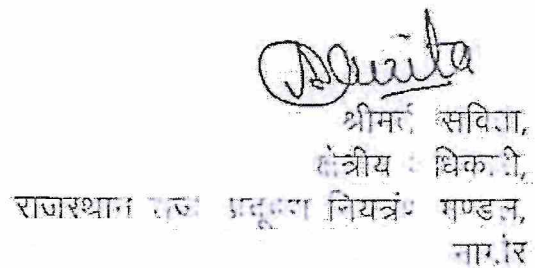 श्रीमती सविता,
क्षेत्रीय अधिकारी,
राजस्थान राज्य प्रदूषण नियंत्रण मण्डल,
नागौर